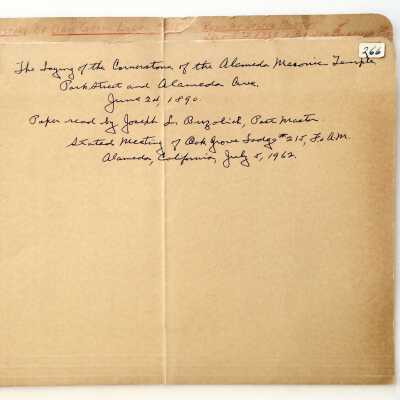 266
The Laying of the Cornerstone of the Alameda Masonic Temple
Park Street and Alameda Ave.
June 2d, 1890.
Paper read by Joseph L. Buzolich, Past Master
Stated Meeting of Oak Grove Lodge #215, F. & A.M.
Alameda, California, July 5, 1962.